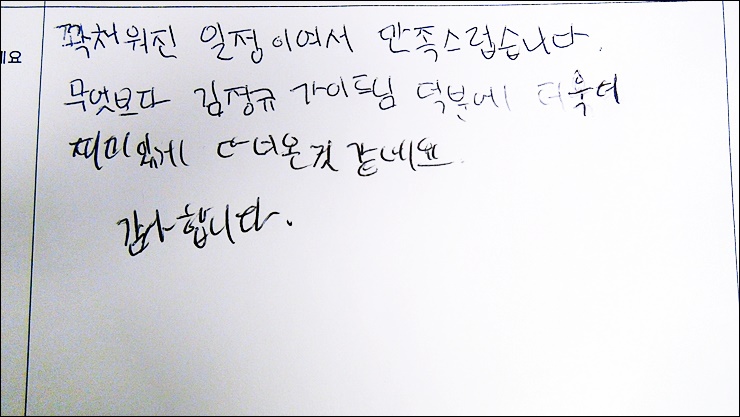 꽉채워진 일정이여서 만족스럽습니다.
무엇보다 김정규 가이드님 덕분에 더욱더
재미있게 다녀온것 같네요.
감사합니다.